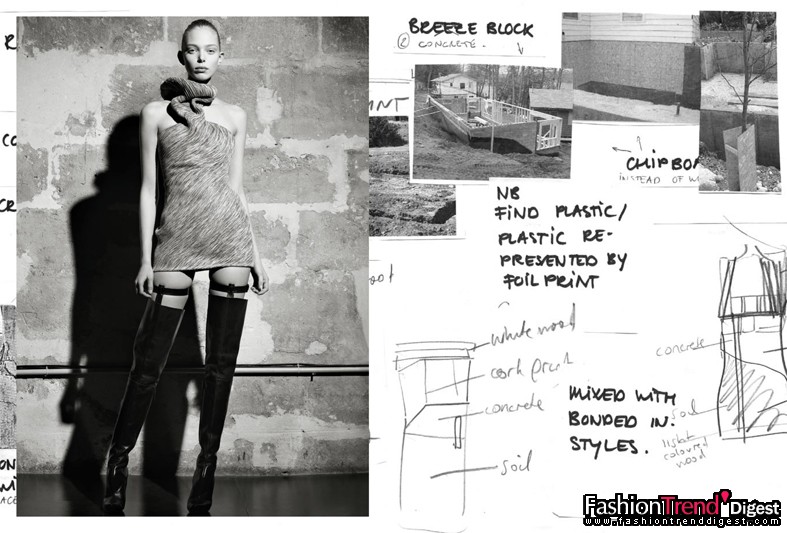 BREEZE BLOCK
② CONCRETE.
CHIPBOA
INSTEAD OF W
NB
FIND PLASTIC/
PLASTIC RE-
PRESENTED BY
FOIL PRINT
white wood
cork print
concrete
soil
MIXED WITH
BONDED IN.
STYLES.
concrete
soil
light
coloured
wood
FashionTrend Digest
www.fashiontrenddigest.com